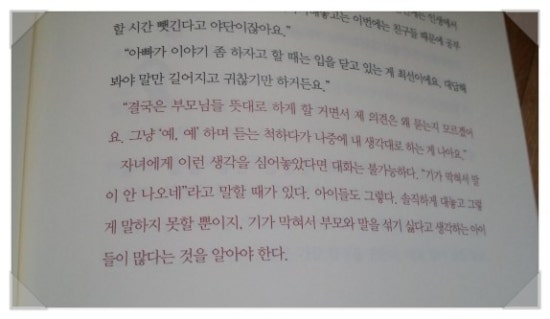 대놓고는 이번에는 친구들 때문에 공부
할 시간 뺏긴다고 야단이잖아요.”
“아빠가 이야기 좀 하자고 할 때는 입을 닫고 있는 게 최선이에요. 대답해
봐야 말만 길어지고 귀찮기만 하거든요.”
“결국은 부모님들 뜻대로 하게 할 거면서 제 의견은 왜 묻는지 모르겠어
요. 그냥 ‘예, 예’ 하며 듣는 척하다가 나중에 내 생각대로 하는 게 나아요.”
자녀에게 이런 생각을 심어놓았다면 대화는 불가능하다. “기가 막혀서 말
이 안 나오네”라고 말할 때가 있다. 아이들도 그렇다. 솔직하게 대놓고 그렇
게 말하지 못할 뿐이지, 기가 막혀서 부모와 말을 섞기 싫다고 생각하는 아이
들이 많다는 것을 알아야 한다.